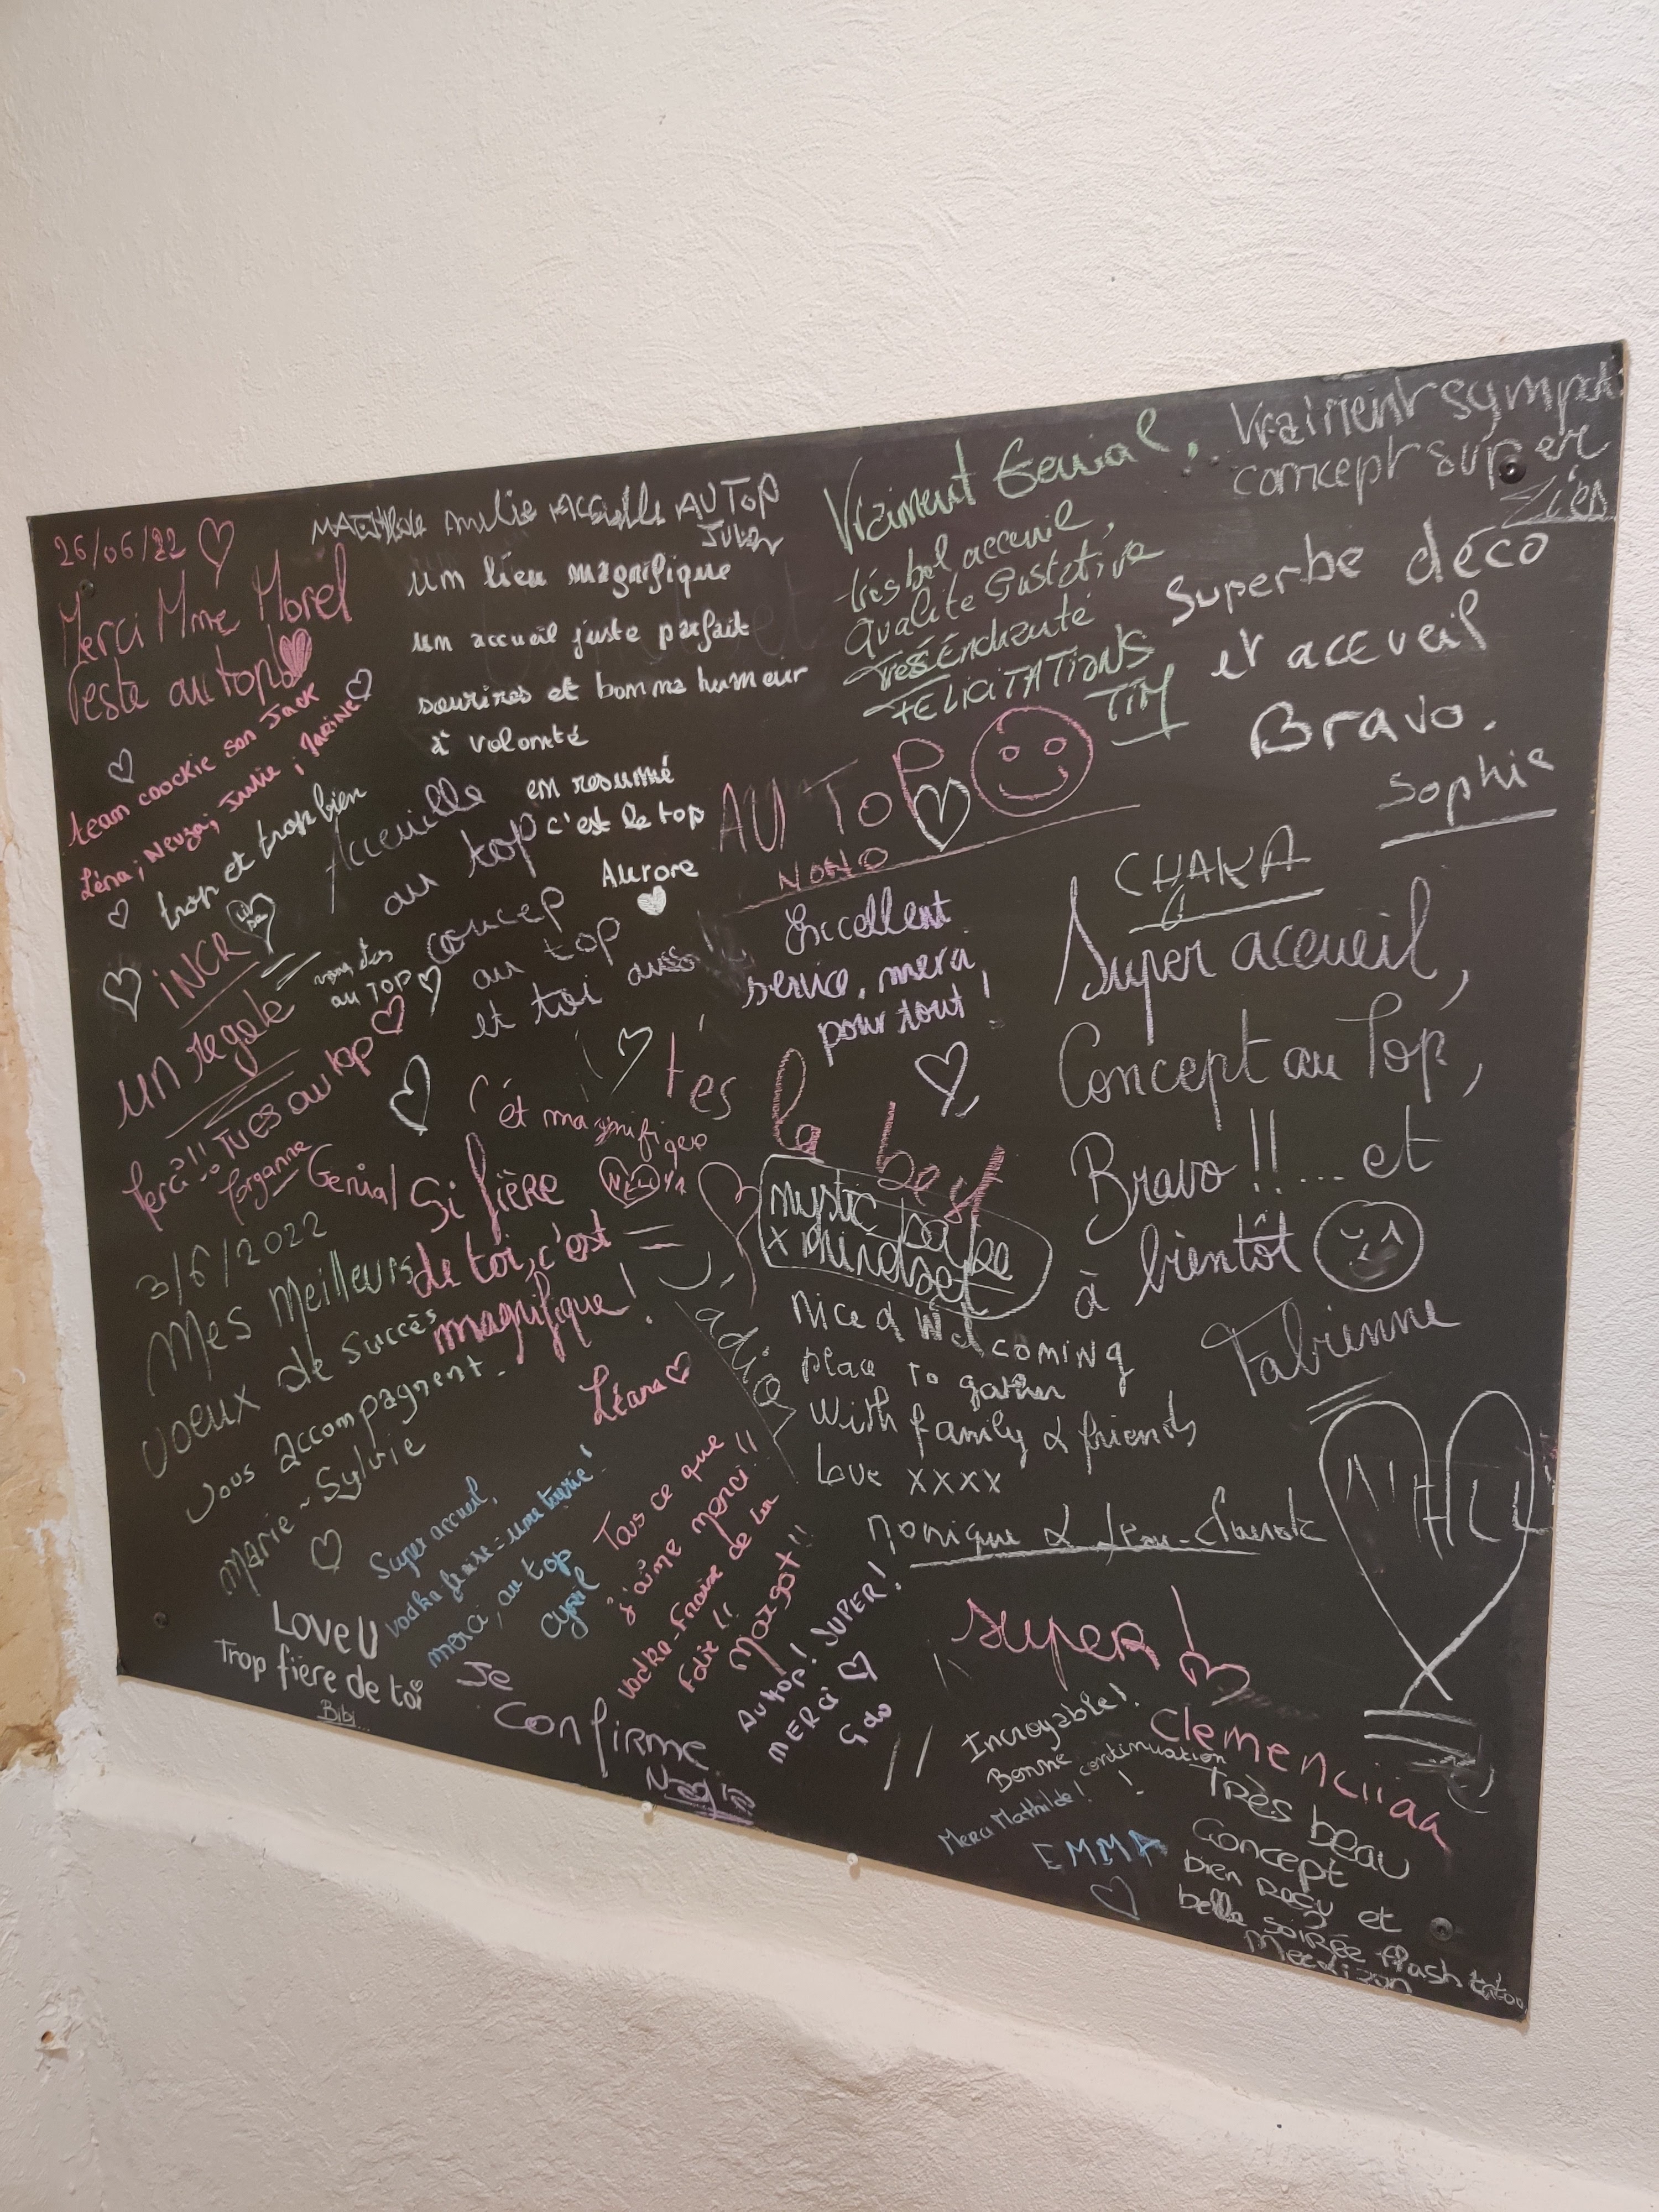 26/06/22
Merci Mme Morel
reste au top
team coockie son Jack
Léna; Neuza; Julie; Marine
trop et trop bien
iNCR
un régale
vous êtes
au TOP
Merci!! Tu es au top
Morganne
Genial
3/6/2022
Mes Meilleurs
voeux de succès
vous accompagnent.
Marie-Sylvie
AU TOP
um lieu magnifique
um accueil juste parfait
sourires et bomme humeur
à volomté
em resumé
c'est le top
Aurore
Accueille
au top
concep
au top
et toi aussi
C'ét magnifique
Si fière
de toi, c'est
magnifique!
Léana
Vraiment Genial,
très bel accueil,
Qualite Gustative
Très Enchanté
FELICITATIONS
TIM
Vraiment sympa
concept super
Superbe déco
et accueil
Bravo.
Sophie
AU TOP
NONO
Excellent
service, merci
pour tout!
t'es
la best
CHAKA
Super accueil,
Concept au Top,
Bravo!!.... et
à bientôt
Fabienne
mystic
x
J'adore
Nice & welcoming
place to gather
with family & friends
Love xxxx
Monique & Jean-Claude
Super accueil,
vodka fraise = une tuerie!
merci, au top
Cyril
Tous ce que
j'aime merci!!
vodka-Fraise de la
Folie!!
Margot!!
Love U
Trop fière de toi
Bibi...
Je
Confirme
Au top! SUPER!
MERCI
super!
Clemenciiaa
Incroyable!
Bonne continuation
!
Merci Mathilde!
EMMA
Très beau
Concept
bien reçu et
belle soirée flash tatoo